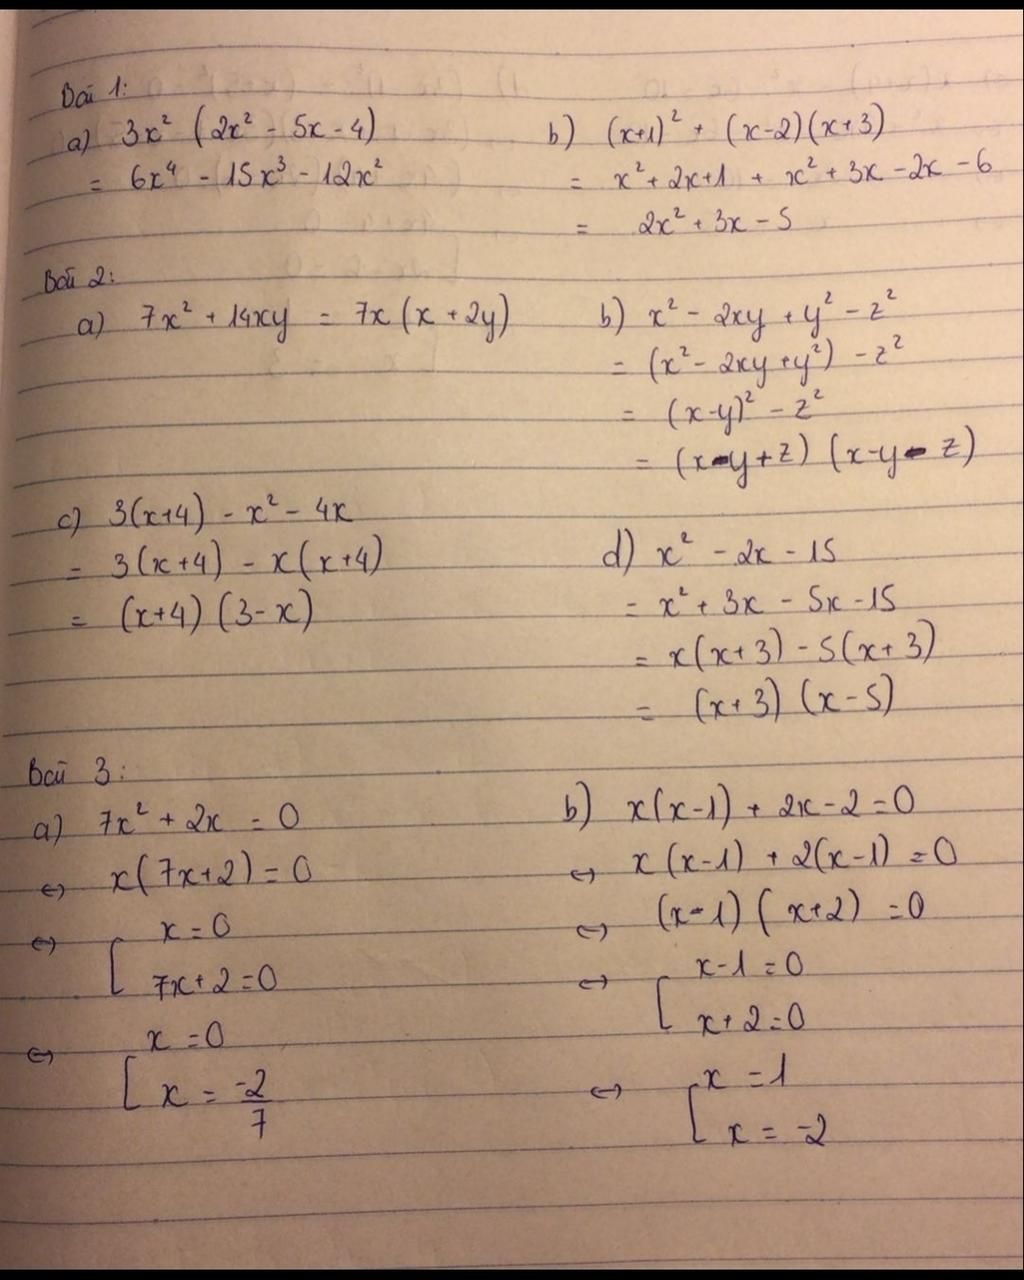 Bài 1:
a) 3x² (2x² - 5x - 4)
= 6x⁴ - 15x³ - 12x²
b) (x+1)² + (x-2)(x+3)
= x² + 2x+1 + x² + 3x - 2x - 6
= 2x² + 3x - 5
Bài 2:
a) 7x² + 14xy = 7x (x + 2y)
b) x² - 2xy + y² - z²
= (x² - 2xy + y²) - z²
= (x-y)² - z²
= (x-y+z) (x-y-z)
c) 3(x+4) - x² - 4x
= 3(x+4) - x(x+4)
= (x+4) (3-x)
d) x² - 2x - 15
= x² + 3x - 5x - 15
= x(x+3) - 5(x+3)
= (x+3) (x-5)
Bài 3:
a) 7x² + 2x = 0
⇔ x(7x+2) = 0
⇔ [ x = 0
7x+2 = 0
⇔ [ x = 0
x = -2/7
b) x(x-1) + 2x - 2 = 0
⇔ x(x-1) + 2(x-1) = 0
⇔ (x-1) (x+2) = 0
⇔ [ x-1 = 0
x+2 = 0
⇔ [ x = 1
x = -2